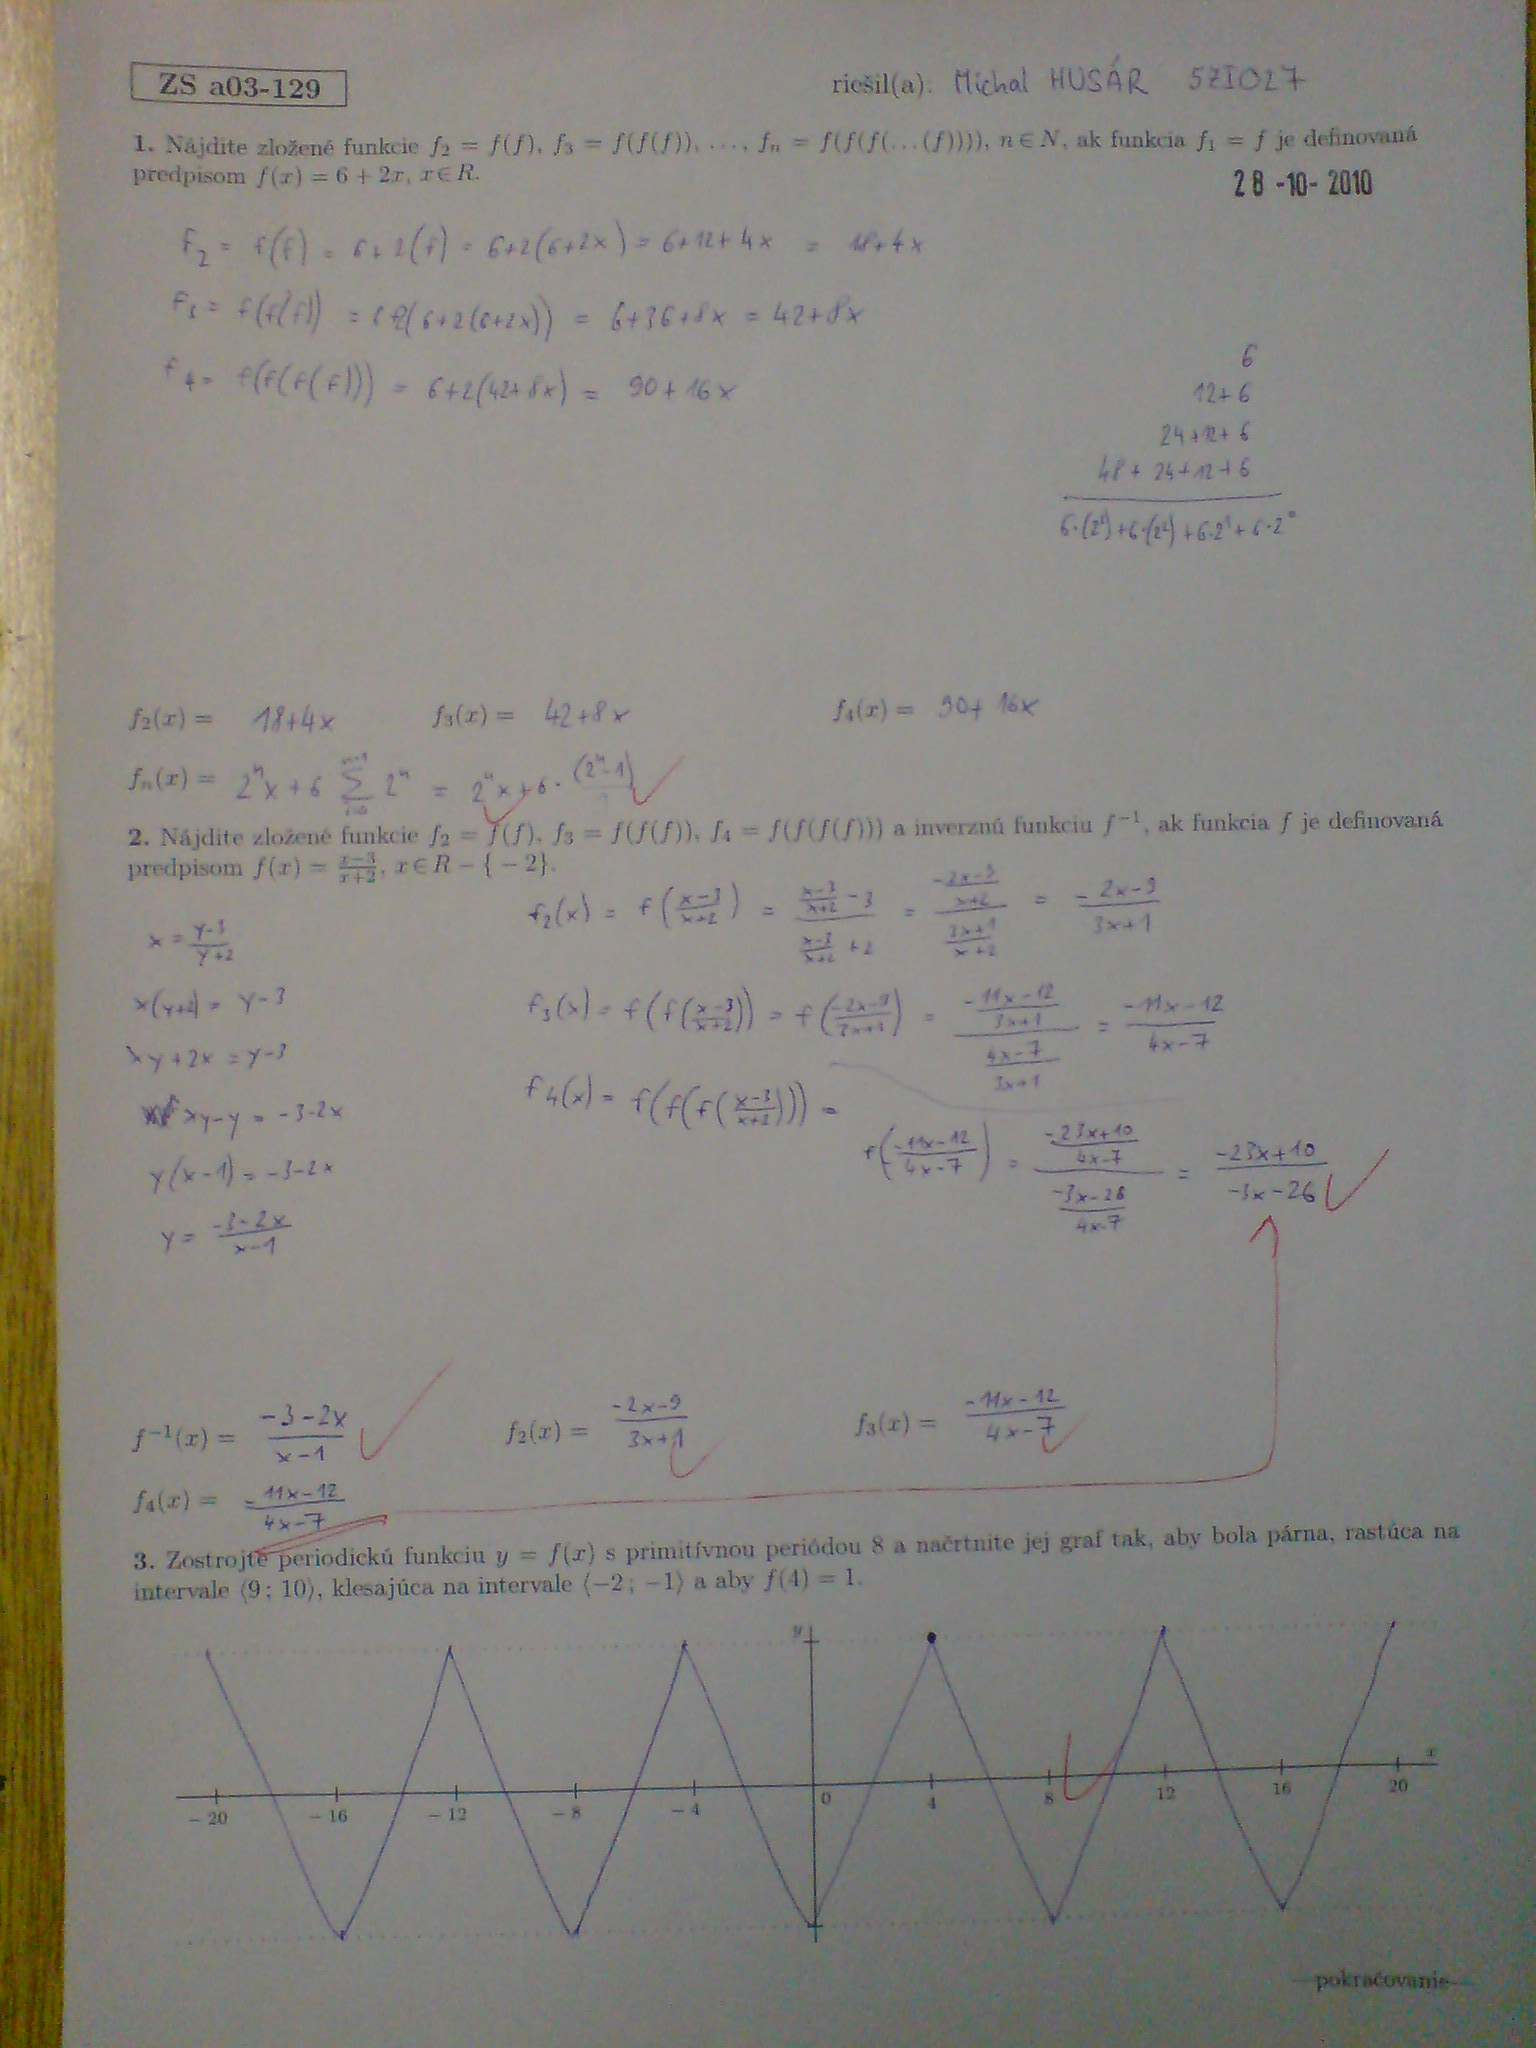 ZS a03-129
riešil(a): Michal HUSÁR 5ZI027
1. Nájdite zložené funkcie f₂ = f(f), f₃ = f(f(f)), …, fₙ = f(f(f(…(f)))), n∈N, ak funkcia f₁ = f je definovaná
predpisom f(x) = 6 + 2x, x∈R.
28 -10- 2010
f₂ = f(f) = 6+2(f) = 6+2(6+2x) = 6+12+4x = 18+4x
f₃ = f(f(f)) = 6+2(6+2(6+2x)) = 6+36+8x = 42+8x
f₄ = f(f(f(f))) = 6+2(42+8x) = 90+16x
6
12+6
24+12+6
48+24+12+6
f₂(x) = 18+4x f₃(x) = 42+8x f₄(x) = 90+16x
fₙ(x) = 2ⁿx + 6 ∑ 2ⁿ = 2ⁿx + 6·(2ⁿ-1)
2. Nájdite zložené funkcie f₂ = f(f), f₃ = f(f(f)), f₄ = f(f(f(f))) a inverznú funkciu f⁻¹, ak funkcia f je definovaná
predpisom f(x) = (x-3)/(x+2), x∈R - { - 2}.
x = (y-3)/(y+2)
x(y+2) = y-3
xy+2x = y-3
xy-y = -3-2x
y(x-1) = -3-2x
y = (-3-2x)/(x-1)
f₂(x) = f((x-3)/(x+2)) = ((x-3)/(x+2) -3)/((x-3)/(x+2) +2) = ((-2x-9)/(x+2))/((3x+1)/(x+2)) = (-2x-9)/(3x+1)
f₃(x) = f(f((x-3)/(x+2))) = f((-2x-9)/(3x+1)) = ((-11x-12)/(3x+1))/((4x-7)/(3x+1)) = (-11x-12)/(4x-7)
f₄(x) = f(f(f((x-3)/(x+2)))) =
f((-11x-12)/(4x-7)) = ((-23x+10)/(4x-7))/((-3x-26)/(4x-7)) = (-23x+10)/(-3x-26)
f⁻¹(x) = (-3-2x)/(x-1) f₂(x) = (-2x-9)/(3x+1) f₃(x) = (-11x-12)/(4x-7)
f₄(x) = (-11x-12)/(4x-7)
3. Zostrojte periodickú funkciu y = f(x) s primitívnou periódou 8 a načrtnite jej graf tak, aby bola párna, rastúca na
intervale ⟨9; 10⟩, klesajúca na intervale ⟨-2; -1⟩ a aby f(4) = 1.
y
x
-20 -16 -12 -8 -4 0 4 8 12 16 20
—pokračovanie—